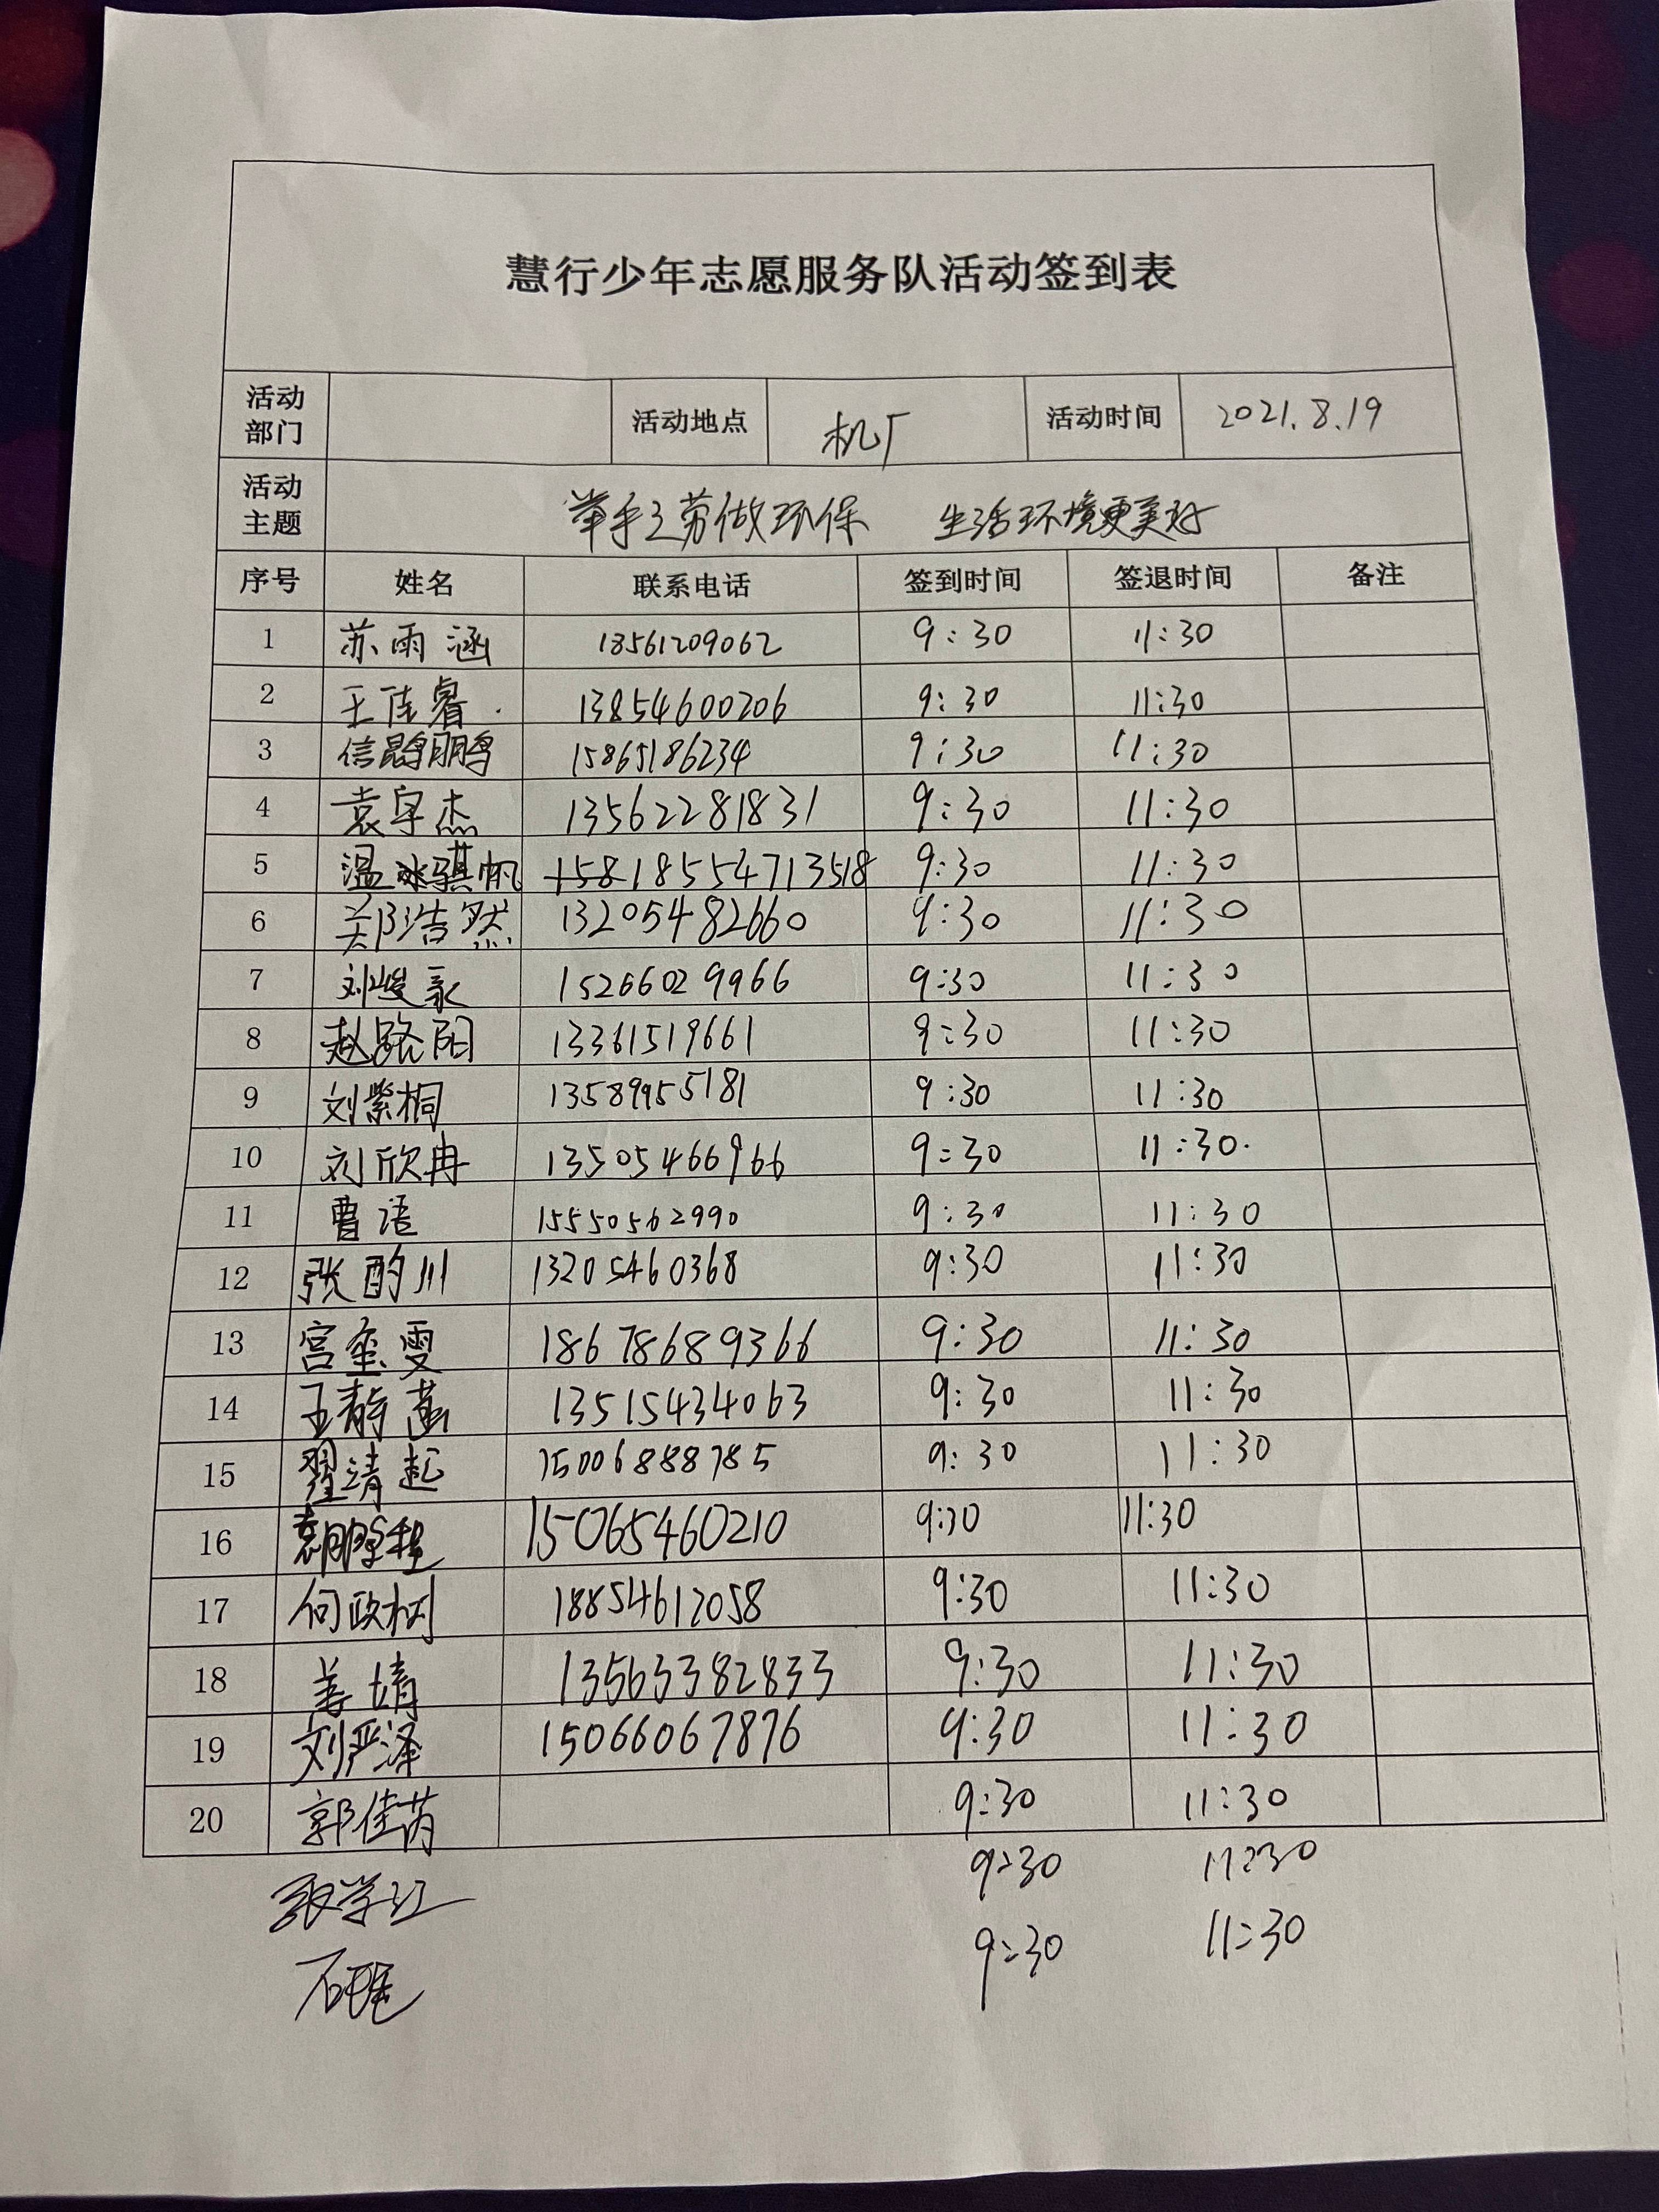 慧行少年志愿服务队活动签到表
活动部门 活动地点 机厂 活动时间 2021.8.19
活动主题 举手之劳做环保 生活环境更美好
序号 姓名 联系电话 签到时间 签退时间 备注
1 苏雨涵 18561209062 9:30 11:30
2 王佳睿 13854600206 9:30 11:30
3 信鹍鹏 15865186234 9:30 11:30
4 袁宇杰 13562281831 9:30 11:30
5 温骐帆 18554713518 9:30 11:30
6 郑浩然 13205482660 9:30 11:30
7 刘峻豪 15266029966 9:30 11:30
8 赵路阳 13361519661 9:30 11:30
9 刘紫桐 13589955181 9:30 11:30
10 刘欣冉 13505466966 9:30 11:30
11 曹语 15550562990 9:30 11:30
12 张酌川 13205460368 9:30 11:30
13 宫玺雯 18678689366 9:30 11:30
14 王静菡 13515434063 9:30 11:30
15 翟靖起 15006888785 9:30 11:30
16 15065460210 9:30 11:30
17 何政树 18854612058 9:30 11:30
18 姜婧 13563382833 9:30 11:30
19 刘严泽 15066067876 9:30 11:30
20 郭佳芮 9:30 11:30
张学江 9:30 11:30
9:30 11:30